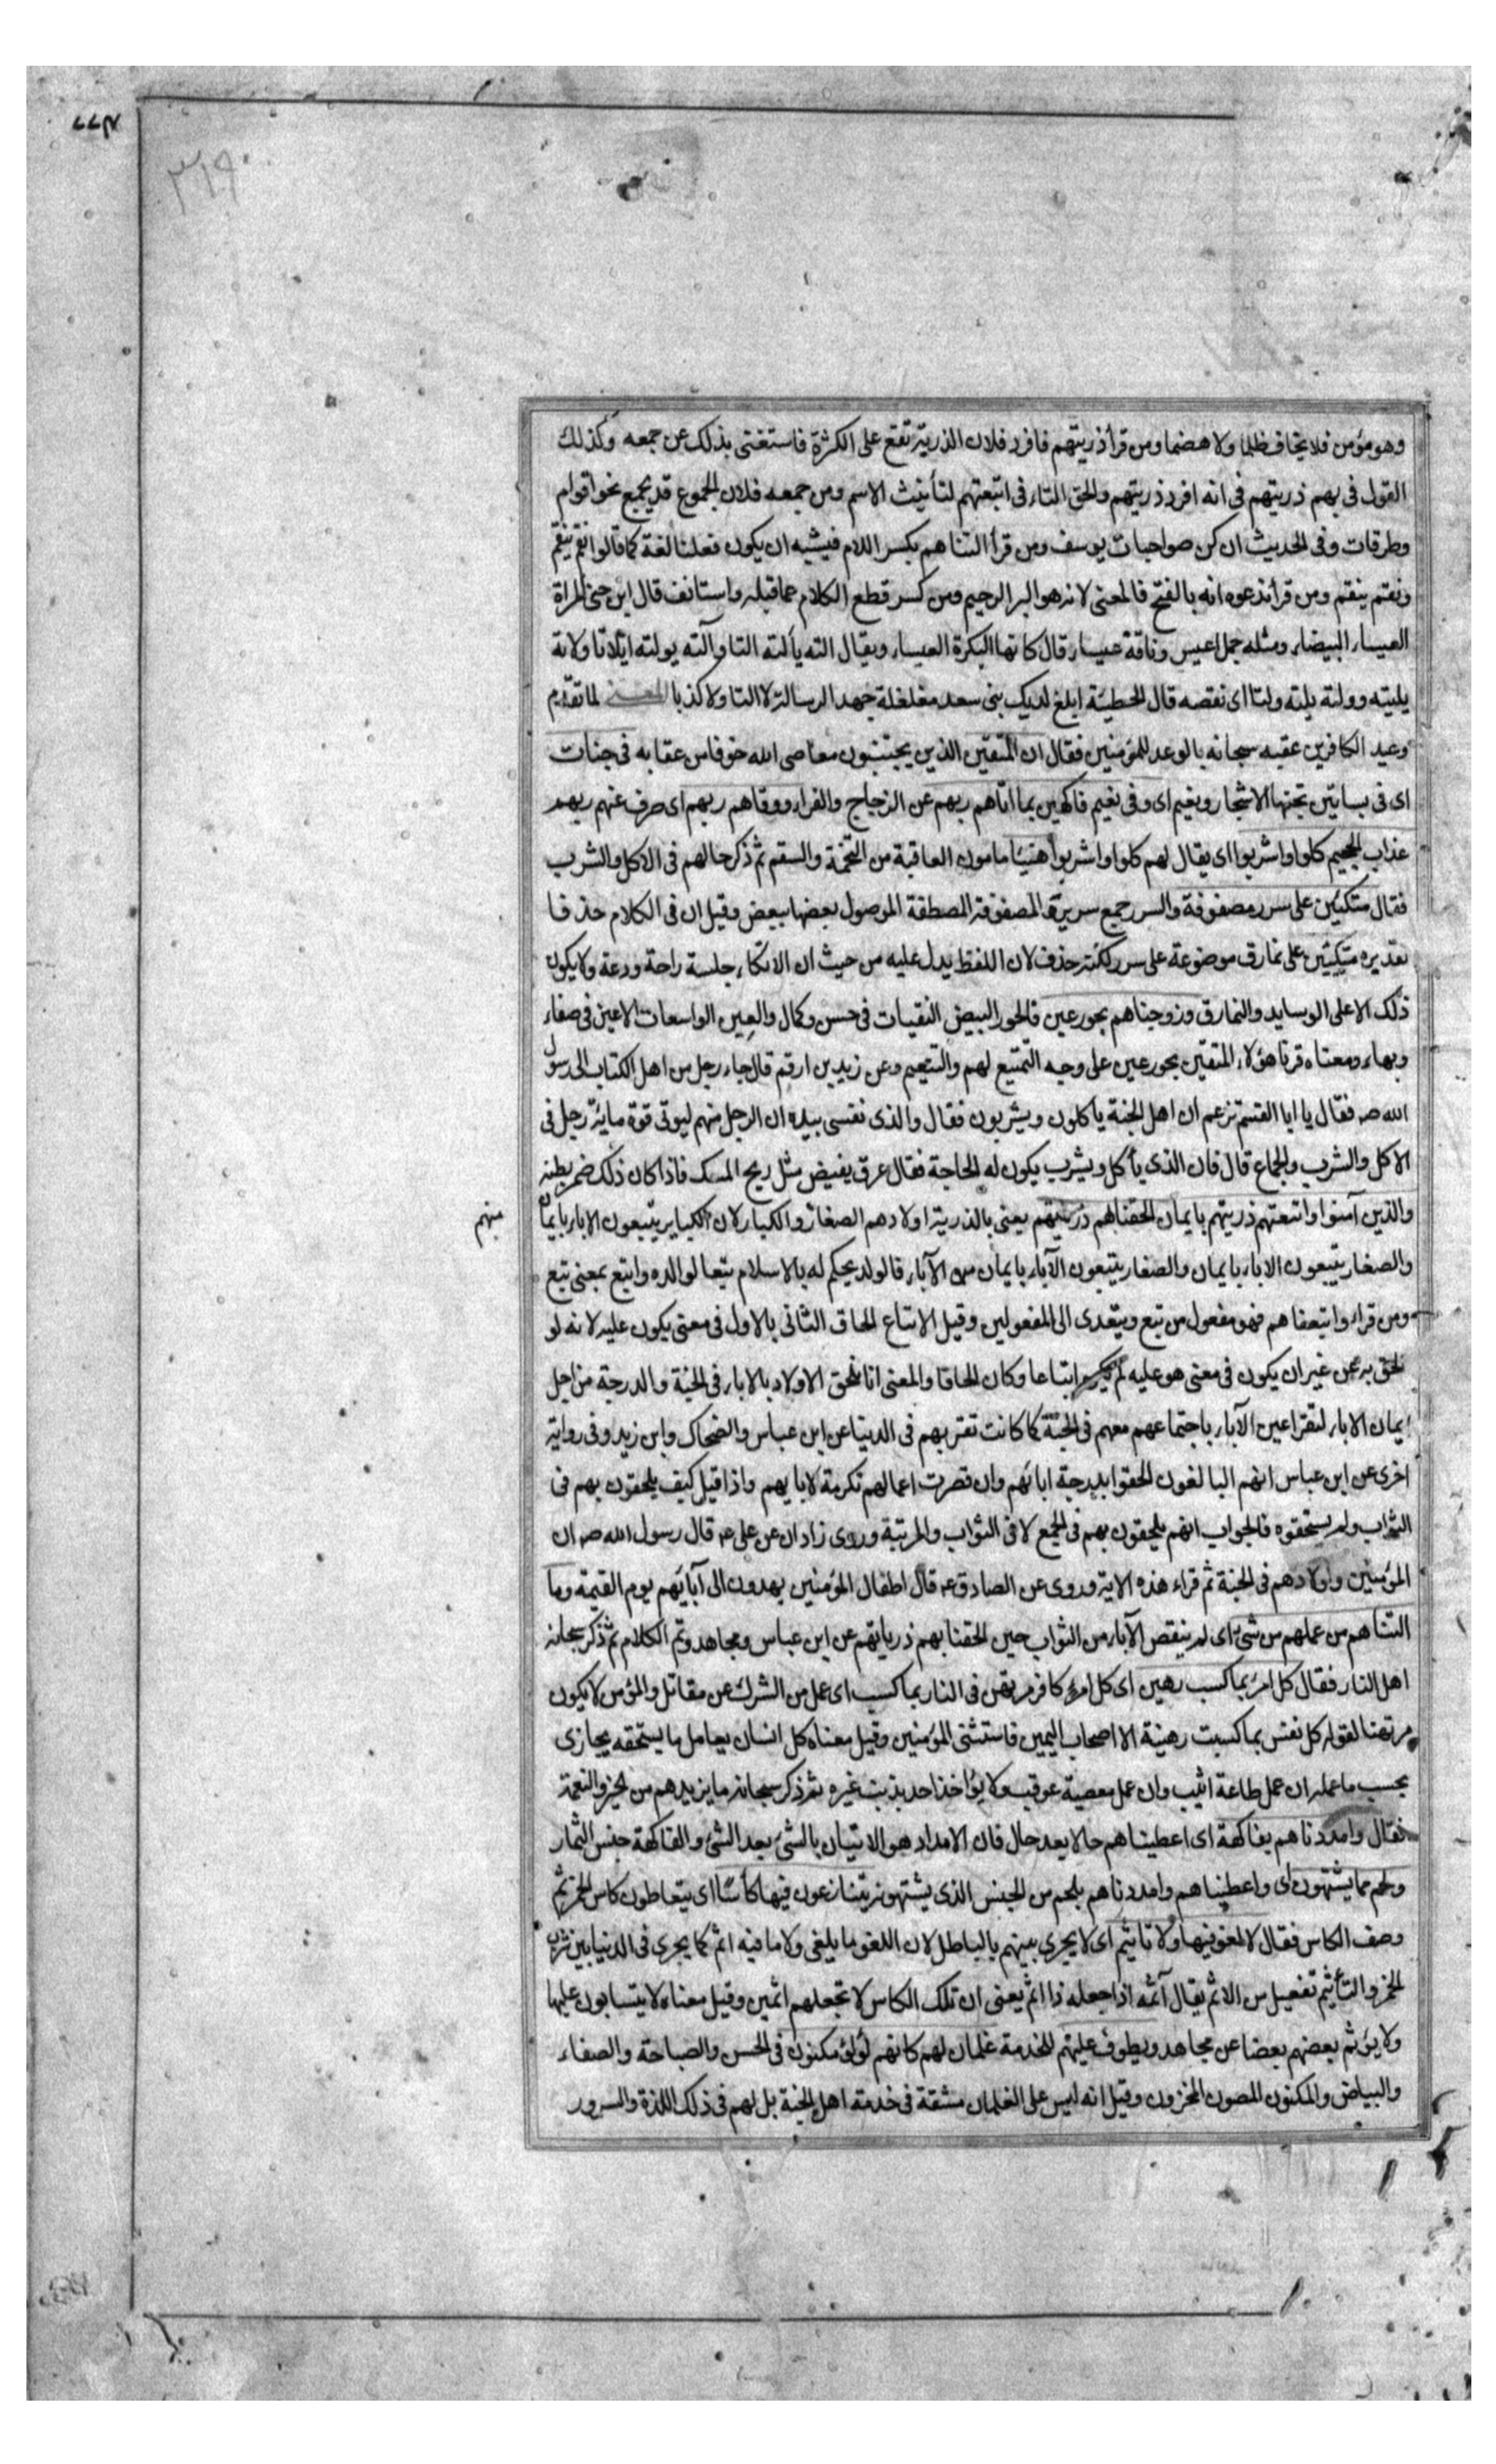 ٣١٩
وهو مؤمن فلا يخاف ظلما ولا هضما ومن قرأ ذريتهم فافرد فلان الذرية تقع على الكثرة فاستغنى بذلك عن جمعه وكذلك
القول فى بهم ذريتهم فى انه افرد ذريتهم والحق التاء فى اتبعتهم لتأنيث الاسم ومن جمعه فلان الجموع قد يجمع نحو اقوام
وطرقات وفى الحديث ان كن صواحبات يوسف ومن قرأ التناهم بكسر اللام فيشبه ان يكون فعلنا لغة كما قالوا نقم ينقم
ونقم ينقم ومن قرأ ندعوه انه بالفتح فالمعنى لانه هو البر الرحيم ومن كسر قطع الكلام عما قبله واستانف قال ابن جنى المراة
العيساء البيضاء ومثله جمل اعيس وناقة عيساء قال كانها البكرة العيساء ويقال الته يألته التا وآلته يولته ايلاتا ولاته
يليته وولته يلته ولتا اى نقصه قال الحطيئة ابلغ لديك بنى سعد مغلغلة جهد الرسالة لا التا ولا كذبا المعنى لما تقدم
وعيد الكافرين عقبه سبحانه بالوعد للمؤمنين فقال ان المتقين الذين يجتنبون معاصى الله خوفا من عقابه فى جنات
اى فى بساتين تجنها الاشجار ونعيم اى وفى نعيم فاكهين بما اتاهم ربهم عن الزجاج والفراء ووقاهم ربهم اى صرف عنهم ربهم
عذاب الجحيم كلوا واشربوا اى يقال لهم كلوا واشربوا هنيئا مامون العاقبة من التخمة والسقم ثم ذكر حالهم فى الاكل والشرب
فقال متكئين على سرر مصفوفة والسرر جمع سرير والمصفوفة المصطفة الموصول بعضها ببعض وقيل ان فى الكلام حذفا
تقديره متكئين على نمارق موضوعة على سرر لكنه حذف لان اللفظ يدل عليه من حيث ان الاتكاء جلسة راحة ودعة ولا يكون
ذلك الا على الوسايد والنمارق وزوجناهم بحور عين فالحور البيض النقيات فى حسن وكمال والعين الواسعات الاعين فى صفاء
وبهاء ومعناه قرنا هؤلاء المتقين بحور عين على وجه التمتيع لهم والتنعيم وعن زيد بن ارقم قال جاء رجل من اهل الكتاب الى رسول
الله صـ فقال يا ابا القسم تزعم ان اهل الجنة يأكلون ويشربون فقال والذى نفسى بيده ان الرجل منهم ليوتى قوة ماية رجل فى
الاكل والشرب والجماع قال فان الذى يأكل ويشرب يكون له الحاجة فقال عرق يفيض مثل ريح المسك فاذا كان ذلك ضمر بطنه
والذين آمنوا واتبعتهم ذريتهم بايمان الحقنا بهم ذريتهم يعنى بالذرية اولادهم الصغار والكبار لان الكبار يتبعون الاباء بايمان
منهم
والصغار يتبعون الاباء بايمان والصغار يتبعون الآباء بايمان من الآباء فالولد يحكم له بالاسلام تبعا لوالده واتبع بمعنى تبع
ومن قراء واتبعناهم فهو مفعول من تبع ويتعدى الى المفعولين وقيل الاتباع الحاق الثانى بالاول فى معنى يكون عليه لانه لو
الحق به من غير ان يكون فى معنى هو عليه لم يكن اتباعا وكان الحاقا والمعنى انا نلحق الاولاد بالاباء فى الجنة والدرجة من اجل
ايمان الاباء لتقر اعين الآباء باجتماعهم معهم فى الجنة كما كانت تقر بهم فى الدنيا عن ابن عباس والضحاك وابن زيد وفى رواية
اخرى عن ابن عباس انهم البالغون الحقوا بدرجة ابائهم وان قصرت اعمالهم تكرمة لابايهم واذا قيل كيف يلحقون بهم فى
الثواب ولم يستحقوه فالجواب انهم يلحقون بهم فى الجمع لا فى الثواب والمرتبة وروى زاذان عن على عـ قال رسول الله صـ ان
المؤمنين واولادهم فى الجنة ثم قراء هذه الاية وروى عن الصادق عـ قال اطفال المؤمنين يهدون الى آبائهم يوم القيمة وما
التناهم من عملهم من شئ اى لم ينقص الآباء من الثواب حين الحقنا بهم ذرياتهم عن ابن عباس ومجاهد وتم الكلام ثم ذكر سبحانه
اهل النار فقال كل امرئ بما كسب رهين اى كل امرئ كافر مرتهن فى النار بما كسب اى عمل من الشرك عن مقاتل والمؤمن لا يكون
مرتهنا لقوله كل نفس بما كسبت رهينة الا اصحاب اليمين فاستثنى المؤمنين وقيل معناه كل انسان يعامل بما يستحقه يجازى
بحسب ما عمله ان عمل طاعة اثيب وان عمل معصية عوقب ولا يؤاخذ احد بذنب غيره ثم ذكر سبحانه ما يزيدهم من الخير والنعمة
فقال وامددناهم بفاكهة اى اعطيناهم حالا بعد حال فان الامداد هو الاتيان بالشئ بعد الشئ والفاكهة جنس الثمار
ولحم مما يشتهون اى واعطيناهم وامددناهم بلحم من الجنس الذى يشتهونه يتنازعون فيها كأسا اى يتعاطون كاس الخمر ثم
وصف الكاس فقال لا لغو فيها ولا تاثيم اى لا يجرى بينهم بالباطل لان اللغو ما يلغى ولا ما فيه اثم كما يجرى فى الدنيا بين شرب
الخمر والتأثيم تفعيل من الاثم يقال آثمه اذا جعله ذا اثم يعنى ان تلك الكاس لا تجعلهم اثمين وقيل معناه لا يتسابون عليها
ولا يؤثم بعضهم بعضا عن مجاهد ويطوف عليهم للخدمة غلمان لهم كانهم لؤلؤ مكنون فى الحسن والصباحة والصفاء
والبياض والمكنون المصون المخزون وقيل انه ليس على الغلمان مشقة فى خدمة اهل الجنة بل لهم فى ذلك اللذة والسرور